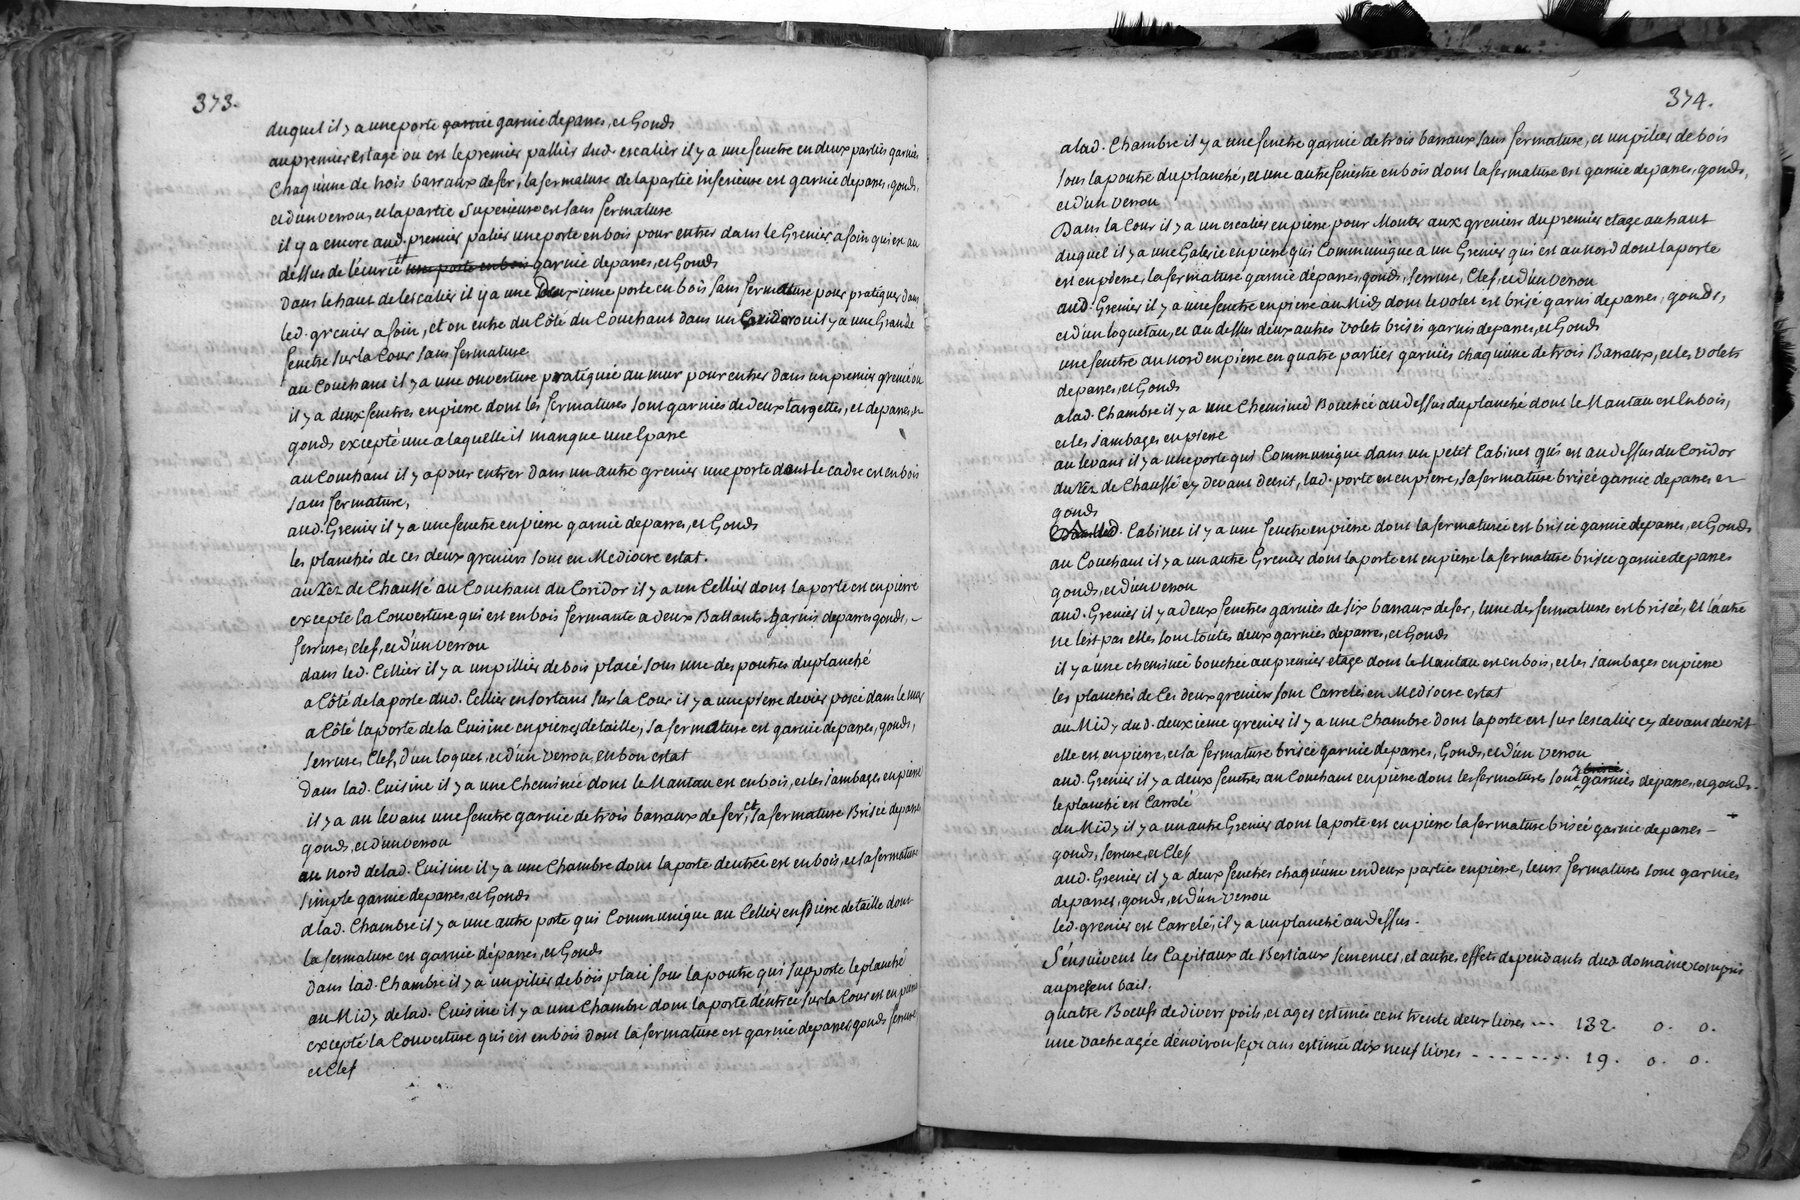 373.
duquel il y a une porte garnie garnie deparres, et Gonds
au premier estage ou est le premier pallier dud. escalier il y a une fenetre en deux parties garnies
chaquune de trois barraux de fer, la fermature de la partie inferieure est garnie deparres, gonds,
et d'un verrou, et la partie Superieure est sans fermature
il y a encore aud. premier palier une porte en bois pour entrer dans le Grenier a foin qui est au
dessus de l'écurie une porte en bois garnie deparres, et Gonds
Dans le haut de l'escalier il y a une Deuxieme porte en bois sans fermature pour pratiquer dans
led. grenier a foin, et on entre du Côté du Couchant dans un Coridor ou il y a une Grande
fenetre sur la Cour sans fermature
au Couchant il y a une ouverture pratiquée au mur pour entrer dans un premier grenié ou
il y a deux fenetres en pierre dont les fermatures sont garnies de deux targettes, et deparres, et
gonds excepté une a laquelle il manque une Eparre
au Couchant il y a pour entrer dans un autre grenier une porte dont le cadre est en bois
sans fermature,
aud. Grenier il y a une fenetre en pierre garnie deparres, et Gonds
les planchés de ces deux greniers sont en Mediocre estat.
au Rez de Chaussé au Couchant du Coridor il y a un Cellier dont la porte est en pierre
excepté la Couverture qui est en bois fermante a deux Battants garnis deparres gonds,
serrure, clef, et d'un verrou
dans led. Cellier il y a un pillier de bois placé sous une des poutres du planché
a Côté de la porte dud. Cellier en sortant sur la Cour il y a une pierre devier posée dans le mur
a Côté la porte de la Cuisine en pierres de taille, sa fermature est garnie deparres, gonds,
serrure, Clef, d'un loquet, et d'un verrou, en bon estat
Dans lad. Cuisine il y a une Cheminée dont le Mantau est en bois, et les jambages en pierre
il y a au levant une fenetre garnie de trois barraux de fer, et sa fermature Brisée deparres
gonds, et d'un verrou
au nord de lad. Cuisine il y a une Chambre dont la porte d'entrée est en bois, et sa fermature
simple garnie deparres, et Gonds
a lad. Chambre il y a une autre porte qui Communique au Cellier en pierre de taille dont
la fermature est garnie déparres, et Gonds
Dans lad. Chambre il y a un pilier de bois placé sous la poutre qui supporte le planché
au Midy de lad. Cuisine il y a une Chambre dont la porte d'entrée sur la Cour est en pierre
excepté la Couverture qui est en bois dont la fermature est garnie deparres gonds serrure
et Clef
374.
a lad. Chambre il y a une fenetre garnie de trois barraux sans fermature, et un pilier de bois
sous la poutre du planché, et une autre fenestre en bois dont la fermature est garnie deparres, gonds,
et d'un verrou
Dans la Cour il y a un escalier en pierre pour Monter aux greniers du premier etage au haut
duquel il y a une Galerie en pierre qui Communique a un Grenier qui est au nord dont la porte
est en pierre, la fermature garnie déparres, gonds, serrure, Clef, et d'un verrou
aud. Grenier il y a une fenetre en pierre au Midy dont le volet est brisé garni deparres, gonds,
et d'un loquetau, et au dessus deux autres volets brisés garnis deparres, et Gonds
une fenetre au nord en pierre en quatre parties garnies chaquune de trois Barraux, et les volets
deparres, et Gonds
a lad. Chambre il y a une Cheminée Bouchée au dessus du planché dont le Mantau est en bois,
et les jambages en pierre
au levant il y a une porte qui Communique dans un petit Cabinet qui est au dessus du Coridor
du Rez de Chaussé cy devant decrit, lad. porte est en pierre, sa fermature brisée garnie deparres et
gonds
aud. Cabinet il y a une fenetre en pierre dont la fermature est brisée garnie deparres, et Gonds
au Couchant il y a un autre Grenier dont la porte est en pierre la fermature brisée garnie deparres
gonds, et d'un verrou
aud. Grenier il y a deux fenetres garnies de six barraux de fer, l'une des fermatures est brisée, et l'autre
ne l'est pas elles sont toutes deux garnies deparres, et Gonds
il y a une cheminée bouchée au premier etage dont le Mantau est en bois, et les jambages en pierre
les planchés de Ces deux greniers sont Carrelés en Mediocre estat
au Midy dud. deuxieme grenier il y a une Chambre dont la porte est sur l'escalier cy devant decrit
elle est en pierre, et la fermature brisée garnie deparres, Gonds, et d'un verrou
aud. Grenier il y a deux fenetres au Couchant en pierre dont les fermatures sont brisées garnies deparres, et gonds.
le planché est Carrelé
au Midy il y a un autre Grenier dont la porte est en pierre la fermature brisée garnie deparres
gonds, serrure, et Clef
aud. Grenier il y a deux fenetres chaquune en deux parties en pierre, leurs fermatures sont garnies
deparres, gonds, et d'un verrou
led. grenier est Carrelé, il y a un planché au dessus.
S'ensuivent les Capitaux de Bestiaux semences, et autres effets dependants dud. domaine compris
au present bail.
quatre Boeufs de divers poils, et ages estimés cent trente deux livres --- 132. 0. 0.
une vache agée d'environ sept ans estimée dix neuf livres - - - - - - - 19. 0. 0.